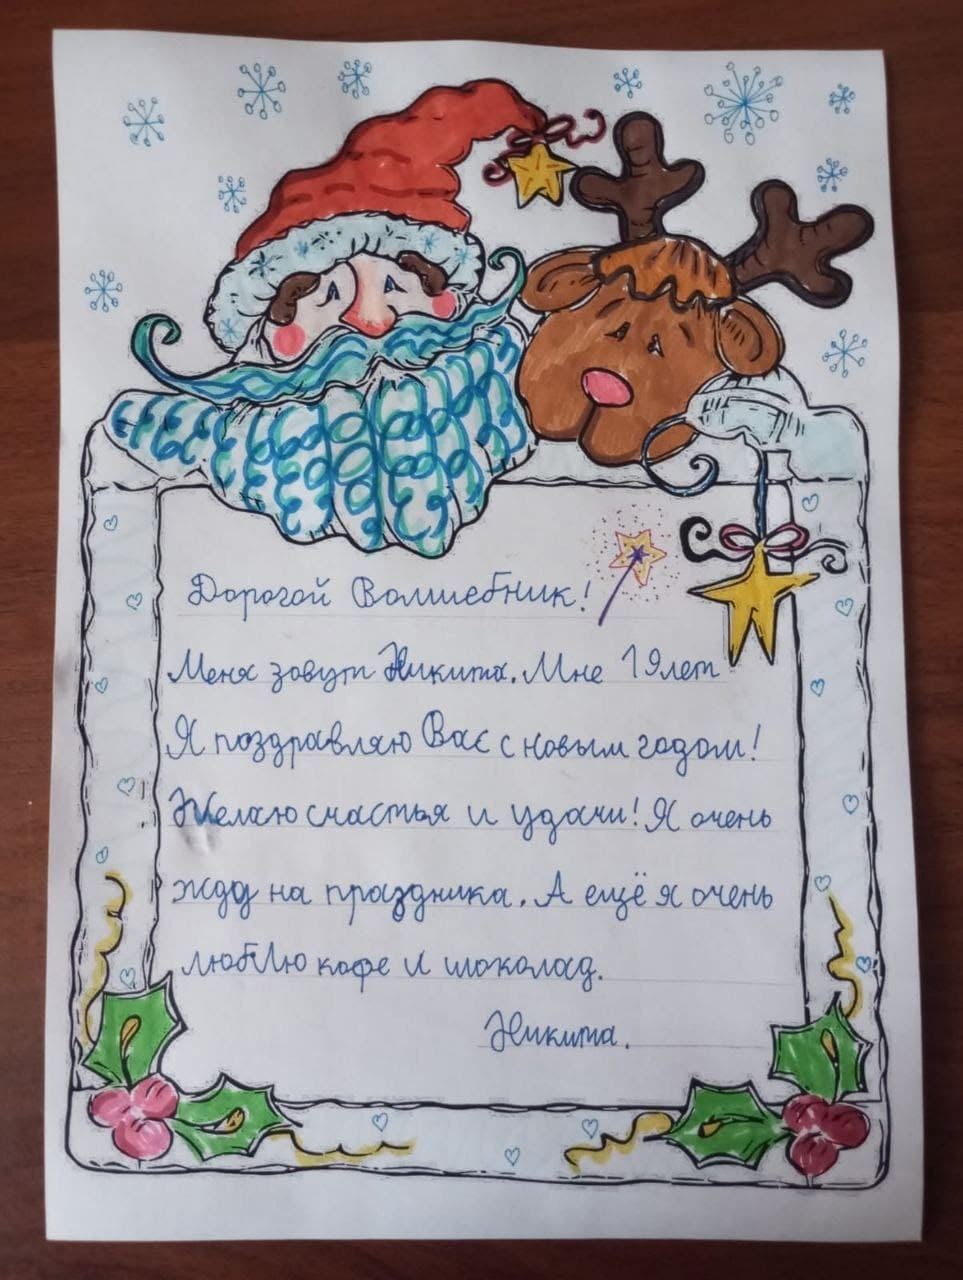 Дорогой Волшебник!
Меня зовут Никита. Мне 19 лет
Я поздравляю Вас с новым годом!
Желаю счастья и удачи! Я очень
жду на праздника. А ещё я очень
люблю кофе и шоколад.
Никита.